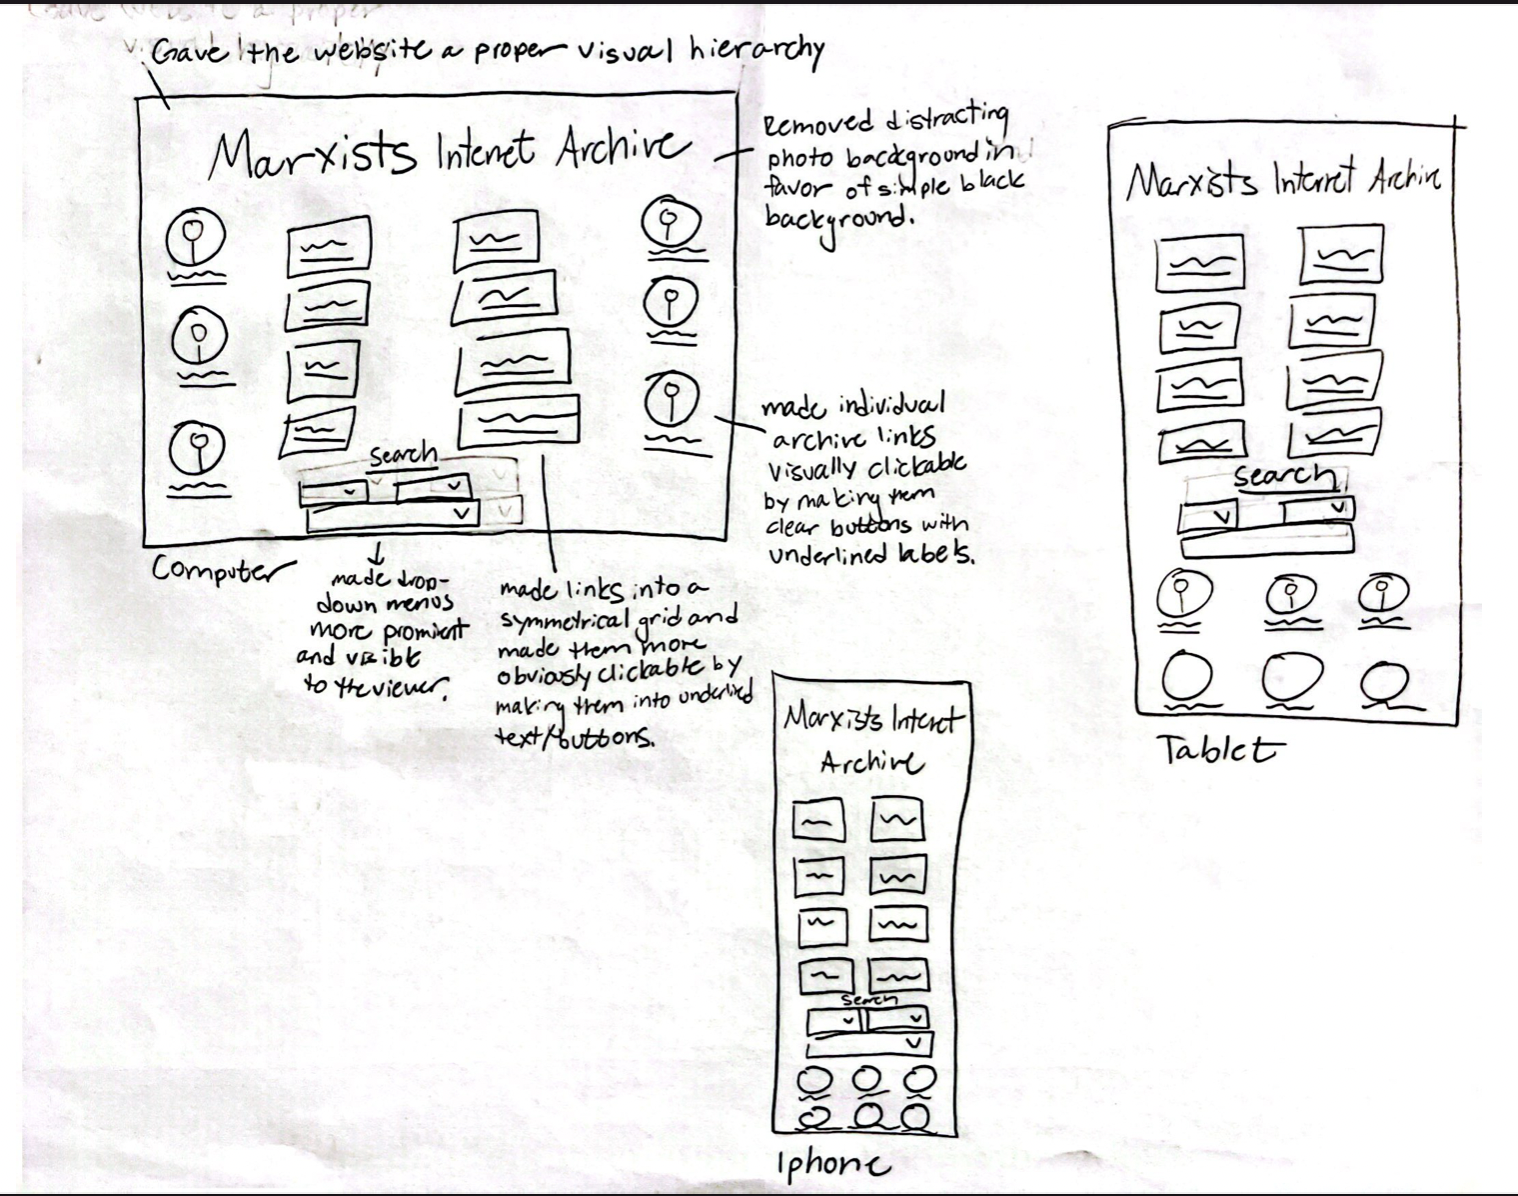 Gave the website a proper visual hierarchy
Marxists Internet Archive
Search
Computer
Removed distracting
photo background in
favor of simple black
background.
made individual
archive links
visually clickable
by making them
clear buttons with
underlined labels.
made drop-
down menus
more prominent
and visible
to the viewer.
made links into a
symmetrical grid and
made them more
obviously clickable by
making them into underlined
text/buttons.
Marxists Internet Archive
Search
Tablet
Marxists Internet
Archive
Search
Iphone